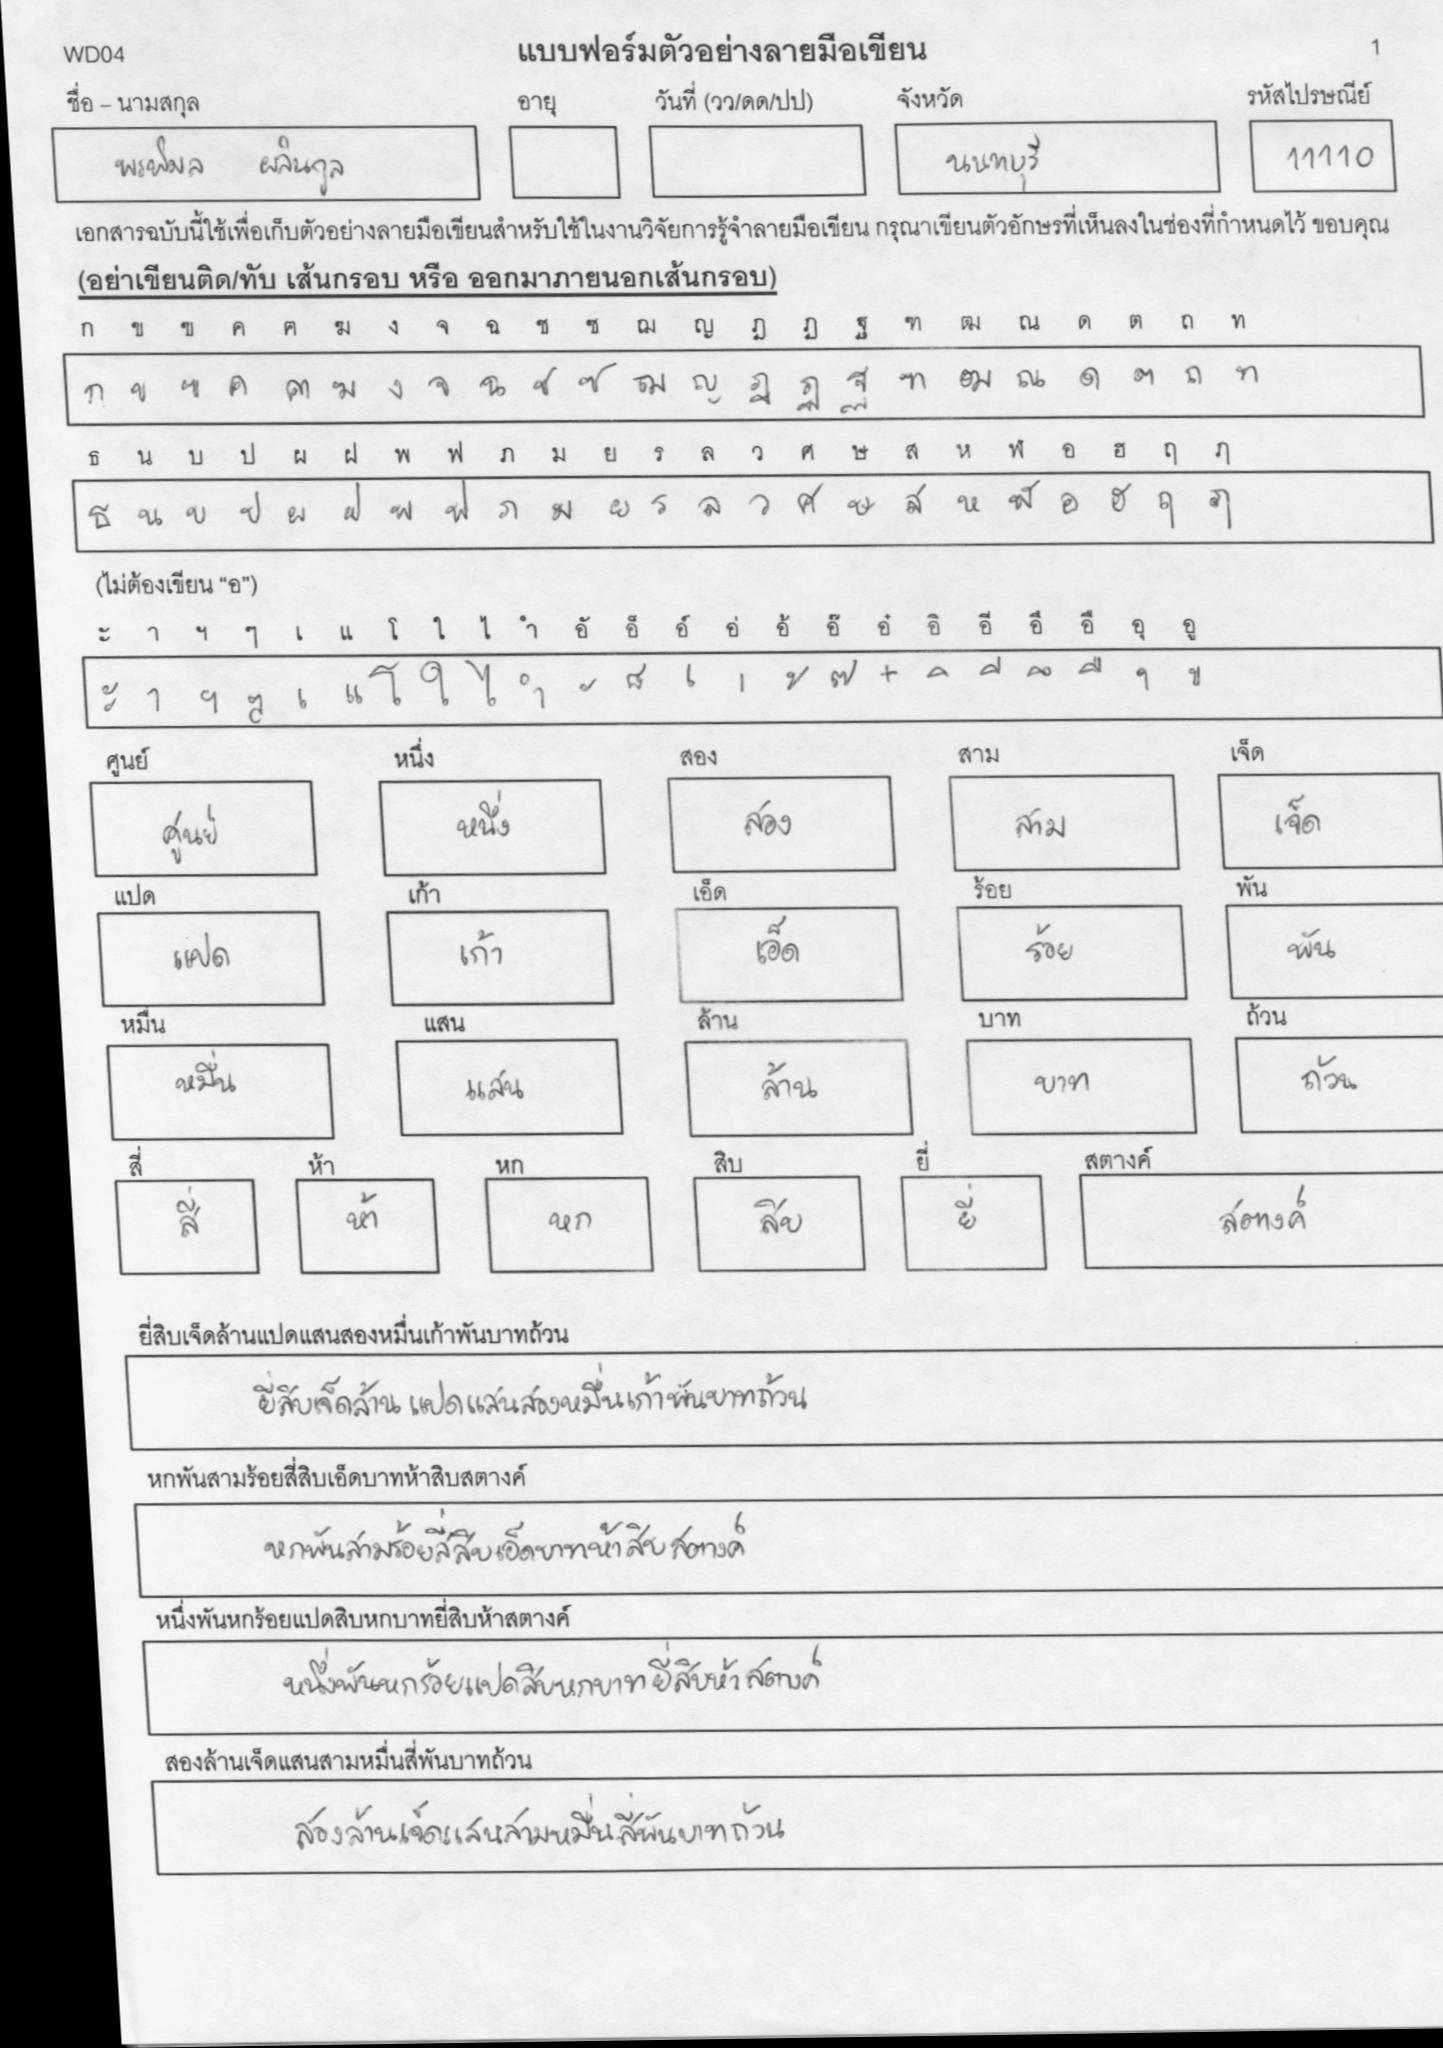 WD04 แบบฟอร์มตัวอย่างลายมือเขียน 1
ชื่อ – นามสกุล อายุ วันที่ (วว/ดด/ปป) จังหวัด รหัสไปรษณีย์
พรพิมล ผลินกูล นนทบุรี 11110
เอกสารฉบับนี้ใช้เพื่อเก็บตัวอย่างลายมือเขียนสำหรับใช้ในงานวิจัยการรู้จำลายมือเขียน กรุณาเขียนตัวอักษรที่เห็นลงในช่องที่กำหนดไว้ ขอบคุณ
(อย่าเขียนติด/ทับ เส้นกรอบ หรือ ออกมาภายนอกเส้นกรอบ)
ก ข ฃ ค ฅ ฆ ง จ ฉ ช ซ ฌ ญ ฎ ฏ ฐ ฑ ฒ ณ ด ต ถ ท
ก ข ฃ ค ฅ ฆ ง จ ฉ ช ซ ฌ ญ ฎ ฏ ฐ ฑ ฒ ณ ด ต ถ ท
ธ น บ ป ผ ฝ พ ฟ ภ ม ย ร ล ว ศ ษ ส ห ฬ อ ฮ ฤ ฦ
ธ น บ ป ผ ฝ พ ฟ ภ ม ย ร ล ว ศ ษ ส ห ฬ อ ฮ ฤ ฦ
(ไม่ต้องเขียน “อ”)
ะ า ฯ ๆ เ แ โ ใ ไ ำ อั อ็ อ์ อ่ อ้ อ๊ อ๋ อิ อี อึ อื อุ อู
ะ า ฯ ๆ เ แ โ ใ ไ ำ ั ็ ์ ่ ้ ๊ ๋ ิ ี ึ ื ุ ู
ศูนย์ หนึ่ง สอง สาม เจ็ด
ศูนย์ หนึ่ง สอง สาม เจ็ด
แปด เก้า เอ็ด ร้อย พัน
แปด เก้า เอ็ด ร้อย พัน
หมื่น แสน ล้าน บาท ถ้วน
หมื่น แสน ล้าน บาท ถ้วน
สี่ ห้า หก สิบ ยี่ สตางค์
สี่ ห้า หก สิบ ยี่ สตางค์
ยี่สิบเจ็ดล้านแปดแสนสองหมื่นเก้าพันบาทถ้วน
ยี่สิบเจ็ดล้าน แปดแสนสองหมื่นเก้าพันบาทถ้วน
หกพันสามร้อยสี่สิบเอ็ดบาทห้าสิบสตางค์
หกพันสามร้อยสี่สิบเอ็ดบาทห้าสิบสตางค์
หนึ่งพันหกร้อยแปดสิบหกบาทยี่สิบห้าสตางค์
หนึ่งพันหกร้อยแปดสิบหกบาทยี่สิบห้าสตางค์
สองล้านเจ็ดแสนสามหมื่นสี่พันบาทถ้วน
สองล้านเจ็ดแสนสามหมื่นสี่พันบาทถ้วน